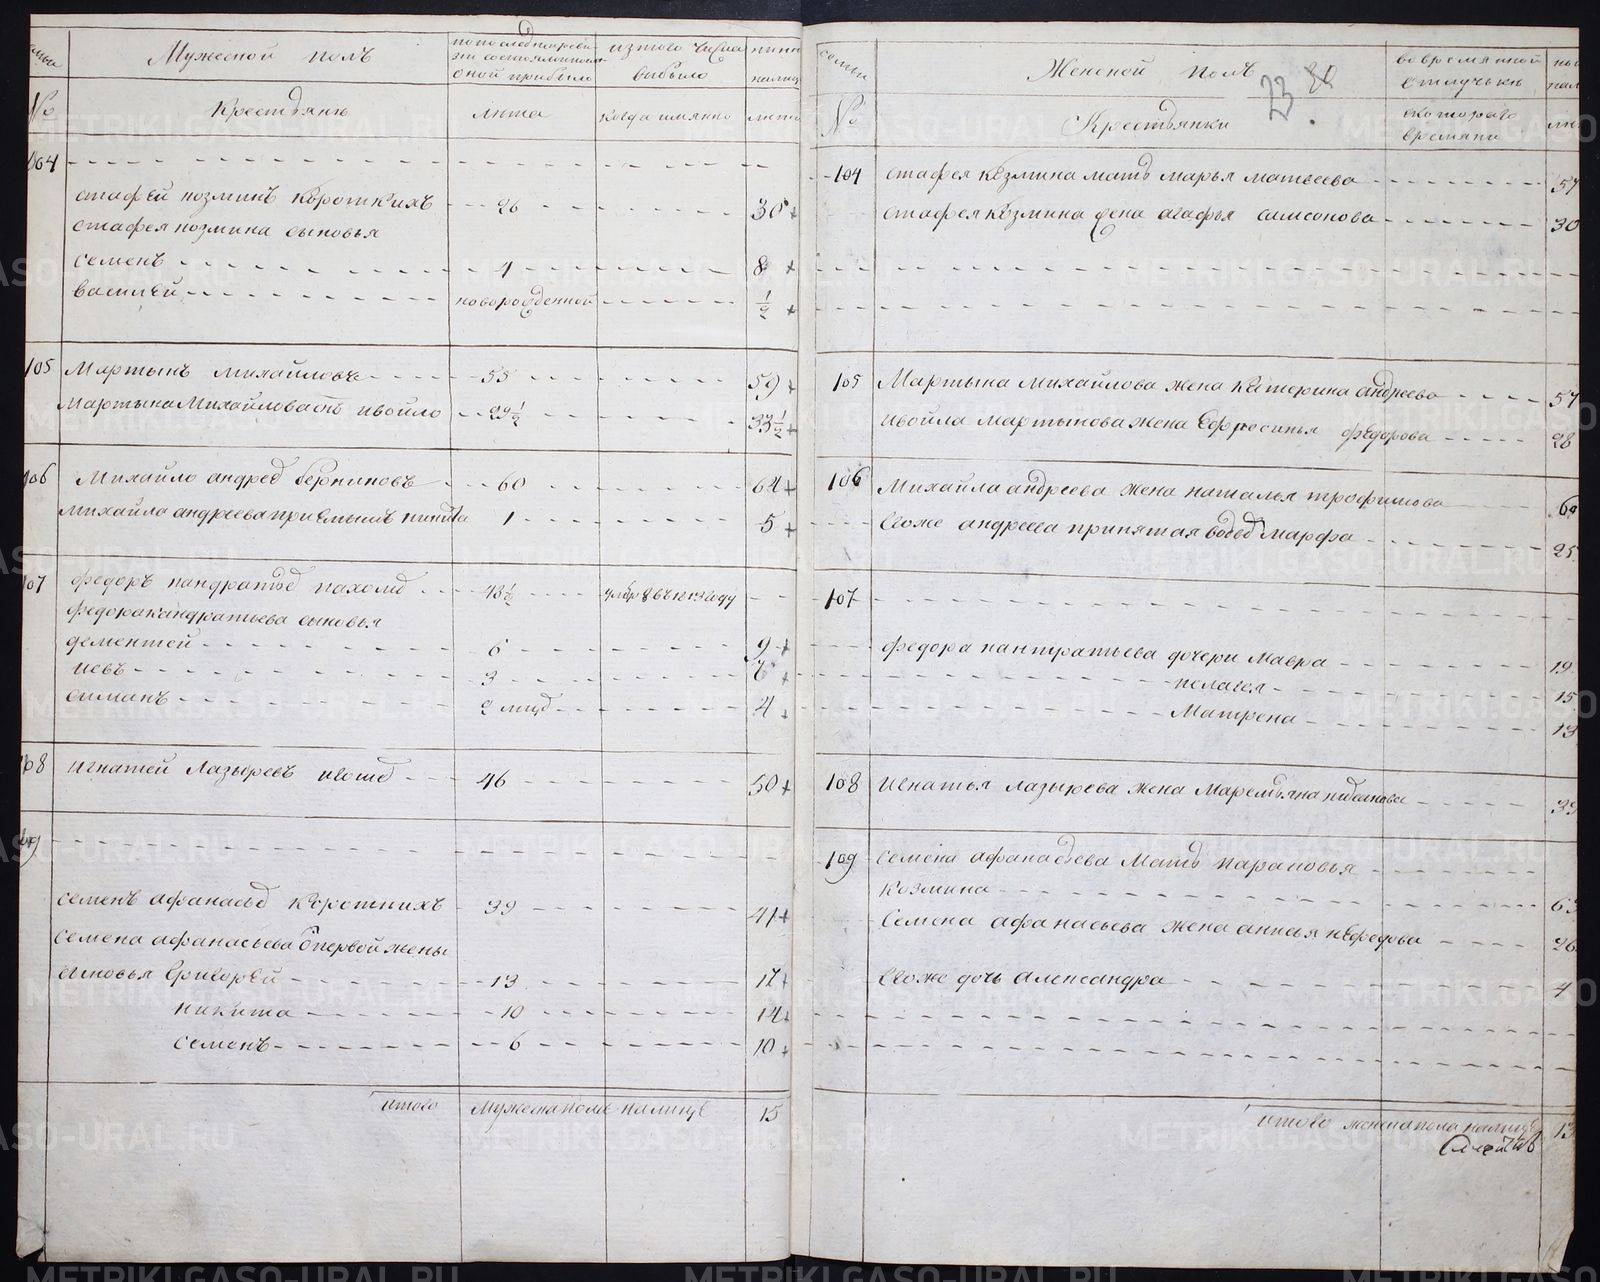 семьи
Мужеской полъ
по последней реви-
зии состояло и после
оной прибыло
из того числа
выбыло
ныне
налицо
№
Крестьянъ
лѣта
когда имянно
лѣта
104
Стафей козминъ Короткихъ 26 30
Стафея козмина сыновья
Семенъ 4 8
Василей новорожденной 1/2
105 Мартынъ Михайловъ 55 59
Мартына Михайлова сынъ ивойло 29 1/2 33 1/2
106 Михайло андреев 60 64
Михайла андреева приемышъ никита 1 5
107 Федоръ кандратьев пахомов 43 1/2
Федора кандратьева сыновья
дементей 6 9
иевъ 3 6
симанъ 2 4
108 Игнатей Лазыревъ 46 50
109
Семенъ афанасьев Коротких 39 41
Семена афанасьева от первой жены
сыновья Григорей 13 17
никита 10 14
Семенъ 6 10
итого мужеска пола налице 15
семьи
Женской полъ
23
во временной
отлучьке
№
Крестьянки
скоторого
времяни
104 Стафея козмина мать Марья матвеева 57
Стафея козмина жена агафья самсонова 30
105 Мартына михайлова жена катерина андреева 57
Ивойла мартынова жена Ефросинья федорова 28
106 Михайла андреева жена наталья трофимова
Евоже андреева принятая Марфа 25
107
Федора кантратьева дочери мавра 19
пелагея 15
Матрена 13
108 Игнатья лазырева жена Маремьяна
109 Семена афанасьева Мать парасковья
козмина 63
Семена афанасьева жена анная нефедова 26
Евоже дочь александра 4
итого женска пола налице 13
METRIKI.GASO-URAL.RU